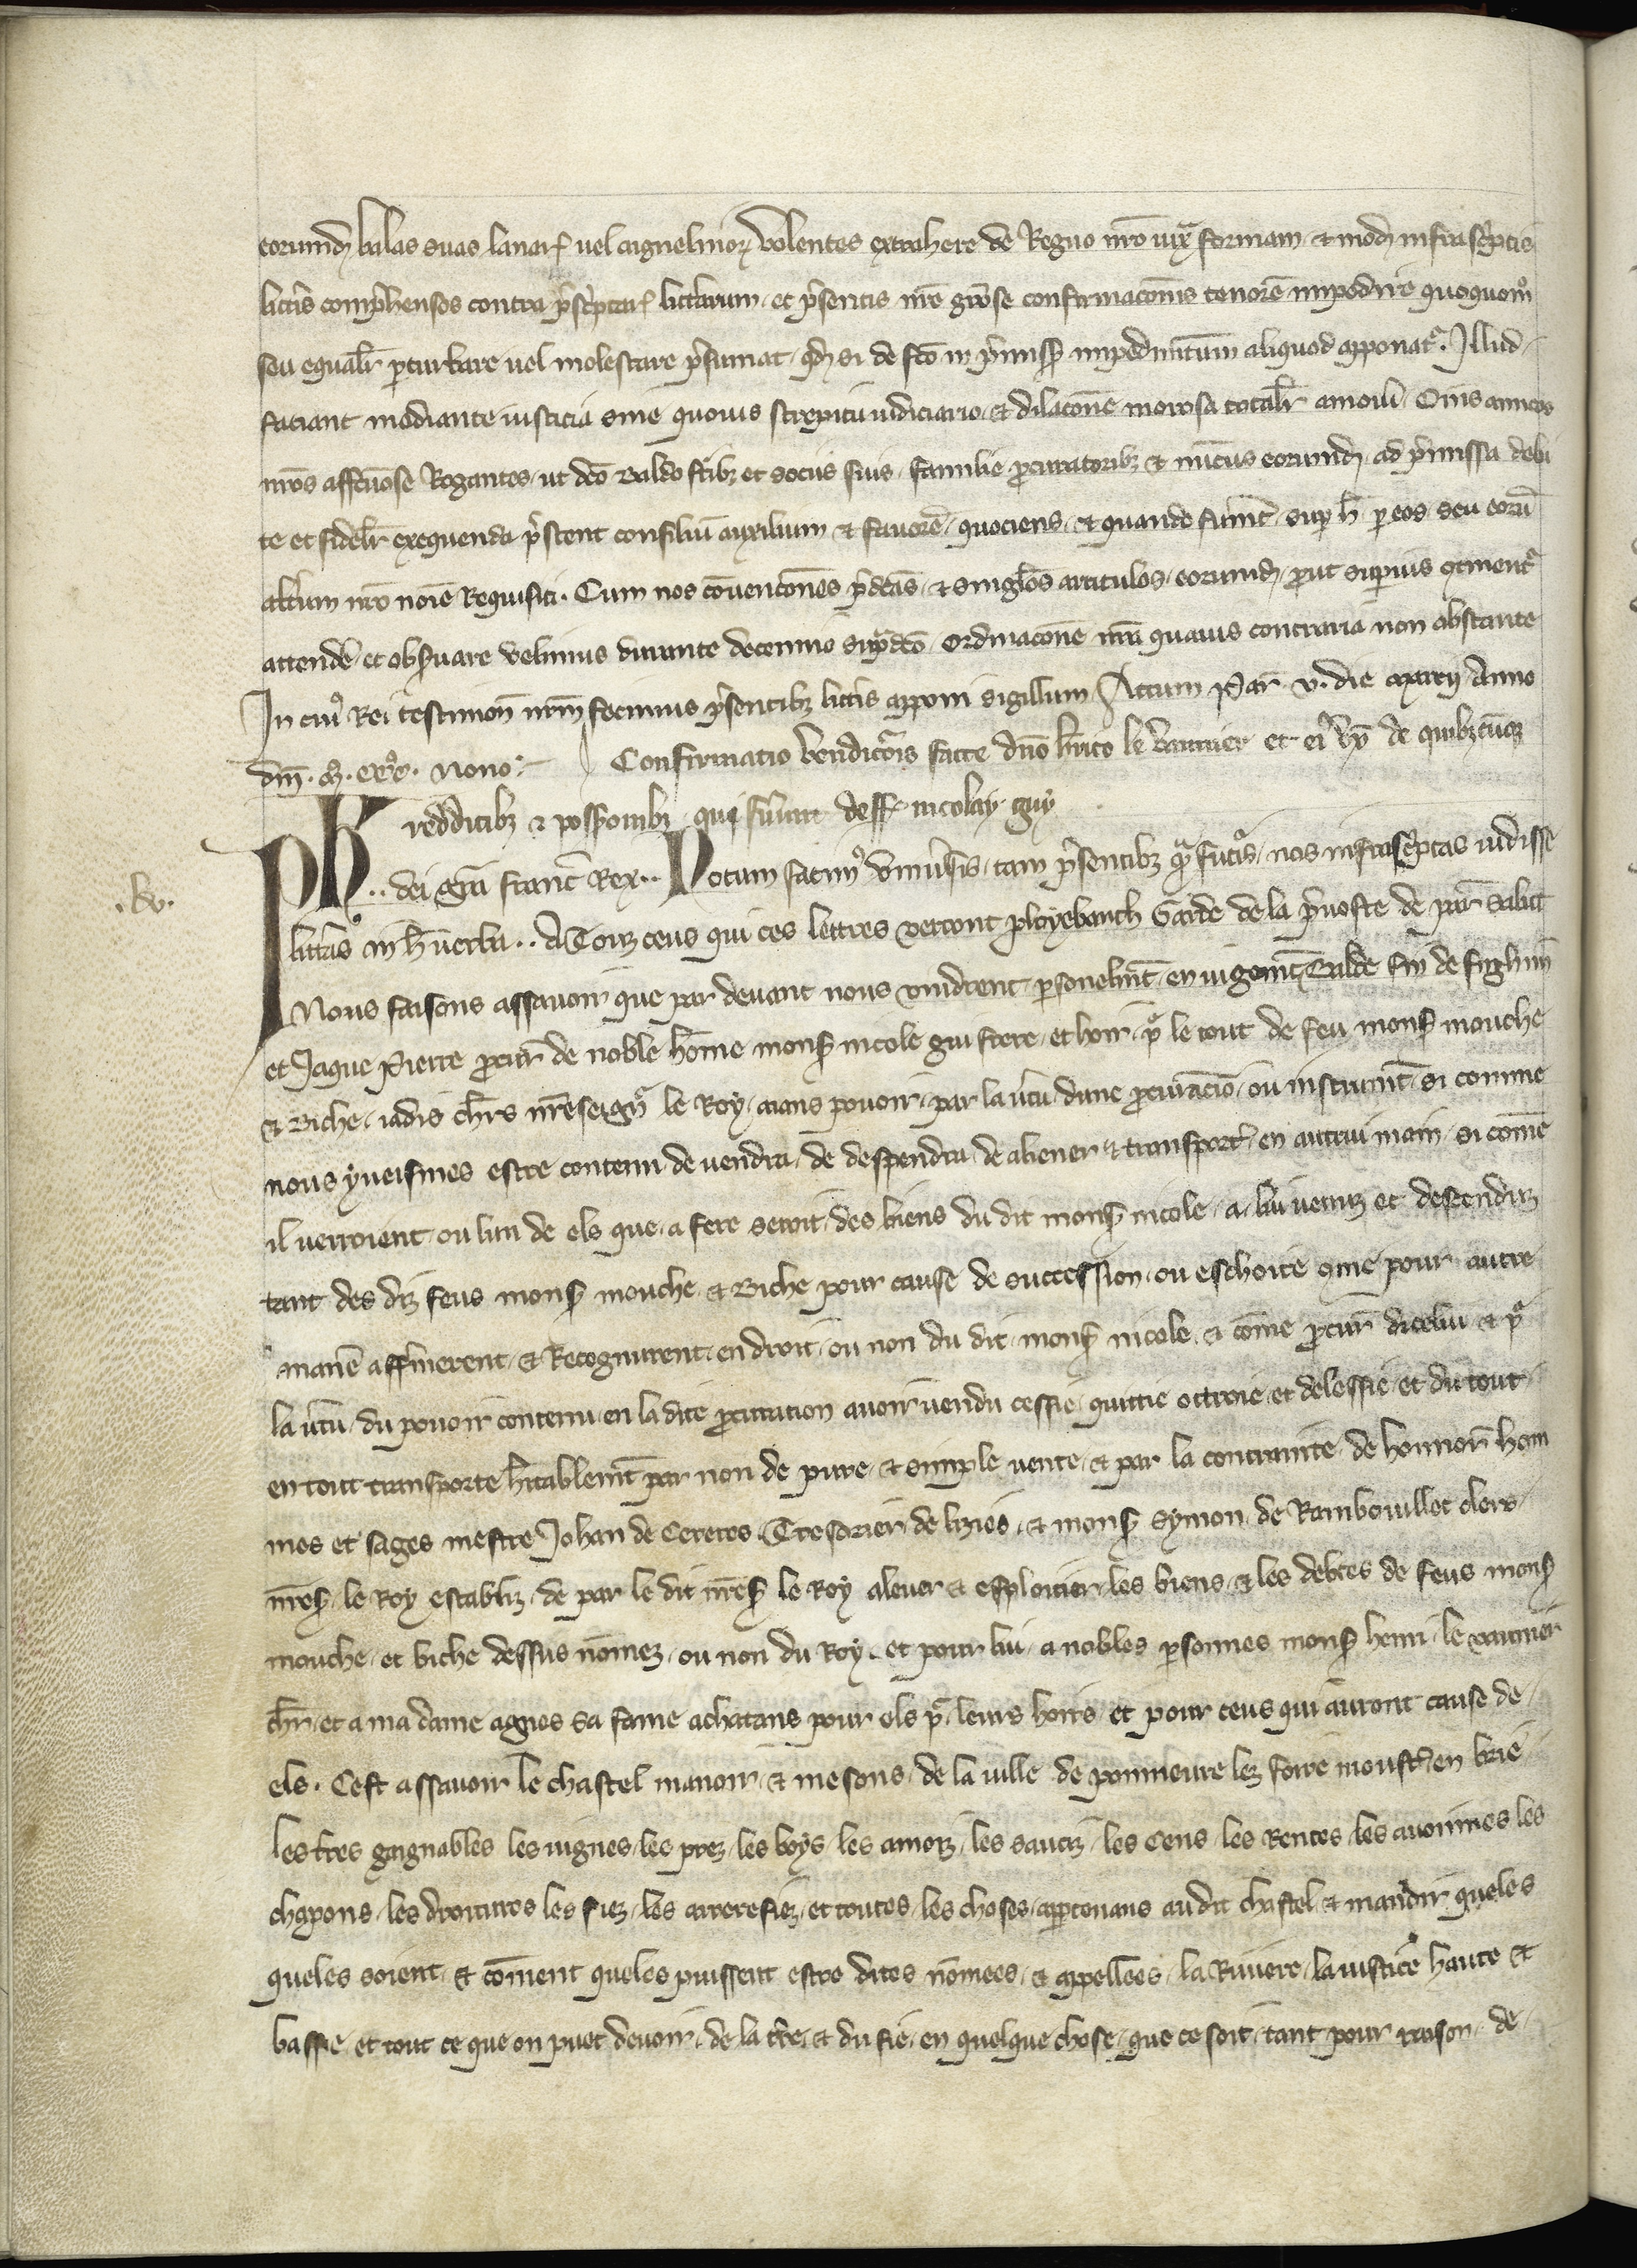 eorumd. balas suas lanar. vel aignelinor. volentes extrahere de Regno nro iuxa formam et mod. infrascptis
littis comphensos contra pscptar. litterarum et psentis nre grose confirmaconis tenore impedire quoquomo
seu equalr pturbare vel molestare psumat qd si de fco in pmiss impedimtum aliquod apponatr. Illud
faciant mediante iusticia sine quouis strepitu iudiciario et dilacone morosa totalr amoui Oms amicos
nros affcuose Rogantes ut dco Baldo fribz et sociis suis familie pcuratoribz et nuciis eorumd. ad pmissa debi
te et fidelr exequenda pstent consilium auxilium et fauore quociens et quando fuint sup h p eos seu eoru
altum nro noie Requisiti. Cum nos couencones pdcas et singlos articulos eorumd. pout supius qtinentr
attende et obsuare velimus durante decennio supdco ordinacone nra quauis contraria non obstante
In cui Rei testimon nrm fecimus psentibz littis apponi sigillum Actum Par. v. die marcij Anno
dni. m. ccc. nono. Confirmatio vendicois facte dno henrico le vannier et ei de quibzcumqz
redditibz et possionibz que fuerunt deff nicolay guy
.lv.
Ph .. dei gra franc Rex .. Notum facim uniusis tam psentibz qua futis nos infrascptas vidisse
littas in h uerba .. A Touz ceus qui ces lettres verront ployebauch Garde de la puoste de par salut
Nous faisons assauoir que par deuant nous vindrent psonelmt en iugemt Balde fin de fighin
et Jaque Pierre pcur de noble home mons nicole gui frere et hoir p le tout de feu mons mouche
et Biche iadis chrs nre seigr le Roy aians pouoir par la utu dune pcuracio ou instrumt si comme
nous y veismes estre contenu de vendre de despendre de aliener et transporter en autrui main si come
il verroient ou lieu de els que a fere seroit des biens du dit mons nicole a lui venuz et descenduz
tant des diz feus mons mouche et Biche pour cause de succession ou eschoite qme pour autre
manie affimerent et Recognurent en droit ou non du dit mons nicole et come pcur diceluj et p
la utu du pouoir contenu en la dite pcuration auoir vendu cessie quittie ottroie et delessie et du tout
en tout transporte hitablemt par non de pure et simple vente et par la contrainte de honnor hom
mes et sages mestre Johan de Ceretes Tresorier de lizies et mons symon de Rambouillet clers
nres le Roy establiz de par le dit nres le Roy a leuer et esploitier les biens et les debtes de feus mons
mouche et biche dessus nomez ou non du Roy et pour lui a nobles psonnes mons henri le vannier
chr et a ma dame agnes sa fame achatans pour els p leurs hoirs et pour ceus qui auront cause de
els. Cest assauoir le chastel manoir et mesons de la ville de pommeure lez foire moust en brie
les tres gaignables les vignes les prez les boys les annoiz les sauciz les Cens les Rentes les auoinnes les
chapons les droitures les fiez les arrerefiez et toutes les choses aptenans au dit chastel et manoir queles
queles soient et coment queles puissent estre dites nomees et appellees la Riuiere la iustice haute et
basse et tout ce que on puet deuoir de la tre et du fie en quelque chose que ce soit tant pour reson de